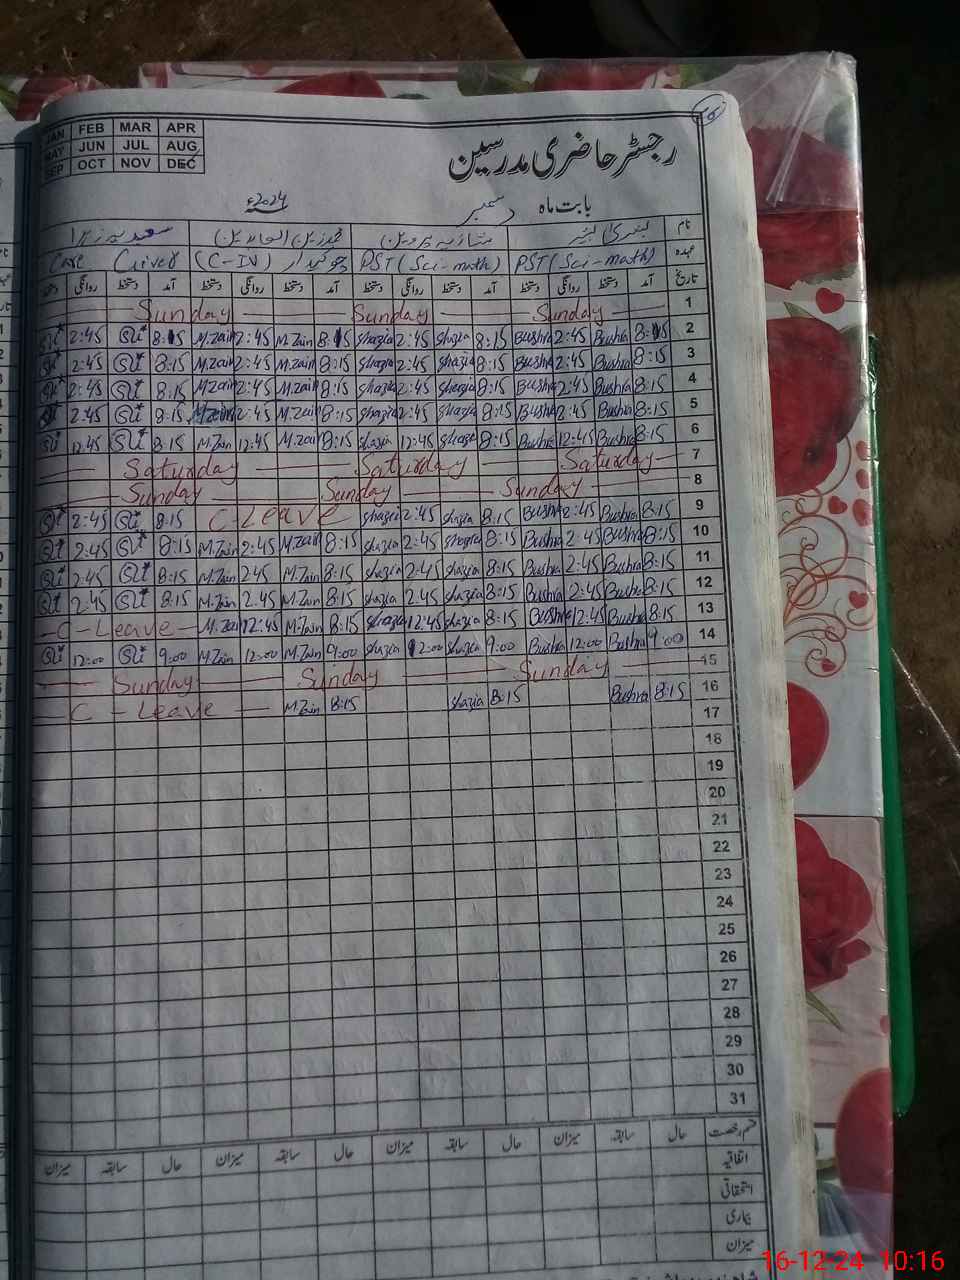 JAN FEB MAR APR
MAY JUN JUL AUG
SEP OCT NOV DEC
رجسٹر حاضری مدرسین
بابت ماہ دسمبر 2024ء
نام
عہدہ PST (Sci-math) PST (Sci-math) چوکیدار (C-IV) Care Giver
تاریخ آمد دستخط روانگی دستخط آمد دستخط روانگی دستخط آمد دستخط روانگی دستخط آمد دستخط روانگی دستخط
Sunday Sunday Sunday 1
2:45 8:15 M.Zain 2:45 M.Zain 8:15 Shazia 2:45 Shazia 8:15 Bushra 2:45 Bushra 8:15 2
2:45 8:15 M.Zain 2:45 M.Zain 8:15 Shazia 2:45 Shazia 8:15 Bushra 2:45 Bushra 8:15 3
2:45 8:15 M.Zain 2:45 M.Zain 8:15 Shazia 2:45 Shazia 8:15 Bushra 2:45 Bushra 8:15 4
2:45 8:15 M.Zain 2:45 M.Zain 8:15 Shazia 2:45 Shazia 8:15 Bushra 2:45 Bushra 8:15 5
12:45 8:15 M.Zain 12:45 M.Zain 8:15 Shazia 12:45 Shazia 8:15 Bushra 12:45 Bushra 8:15 6
Saturday Saturday Saturday 7
Sunday Sunday Sunday 8
2:45 8:15 C-Leave Shazia 2:45 Shazia 8:15 Bushra 2:45 Bushra 8:15 9
2:45 8:15 M.Zain 2:45 M.Zain 8:15 Shazia 2:45 Shazia 8:15 Bushra 2:45 Bushra 8:15 10
2:45 8:15 M.Zain 2:45 M.Zain 8:15 Shazia 2:45 Shazia 8:15 Bushra 2:45 Bushra 8:15 11
2:45 8:15 M.Zain 2:45 M.Zain 8:15 Shazia 2:45 Shazia 8:15 Bushra 2:45 Bushra 8:15 12
C-Leave M.Zain 12:45 M.Zain 8:15 Shazia 12:45 Shazia 8:15 Bushra 12:45 Bushra 8:15 13
12:00 9:00 M.Zain 12:00 M.Zain 9:00 Shazia 12:00 Shazia 9:00 Bushra 12:00 Bushra 9:00 14
Sunday Sunday Sunday 15
C-Leave M.Zain 8:15 Shazia 8:15 Bushra 8:15 16
17
18
19
20
21
22
23
24
25
26
27
28
29
30
31
قسم رخصت حال سابقہ میزان حال سابقہ میزان حال سابقہ میزان حال سابقہ میزان
اتفاقیہ
استحقاقی
بیماری
میزان
16-12-24 10:16